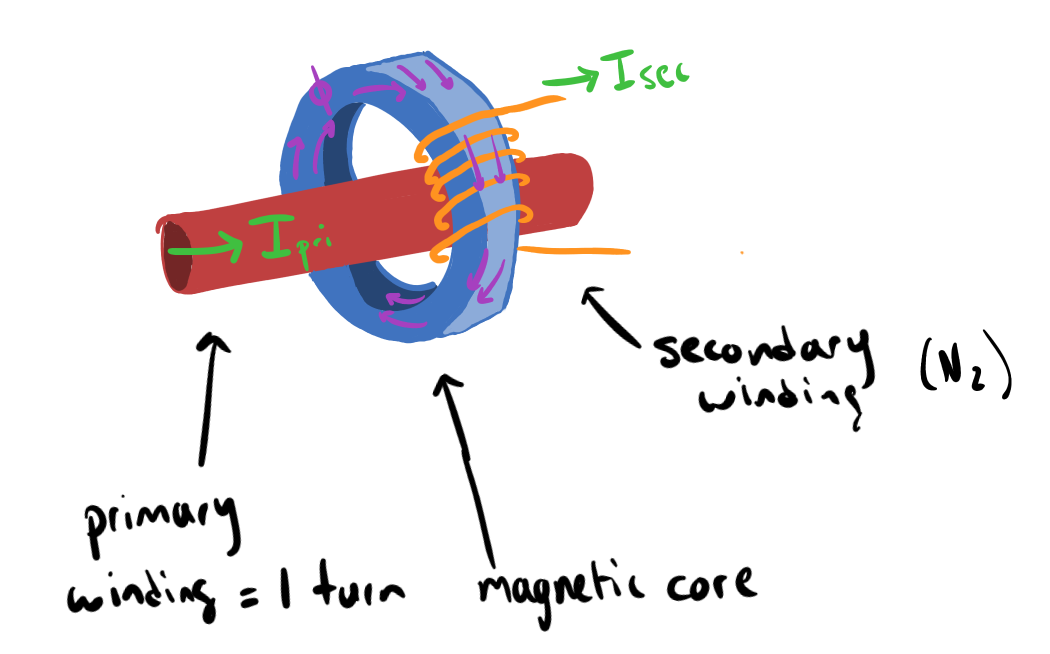 ϕ
Isec
Ipri
secondary
winding (N2)
primary
winding = 1 turn
magnetic core